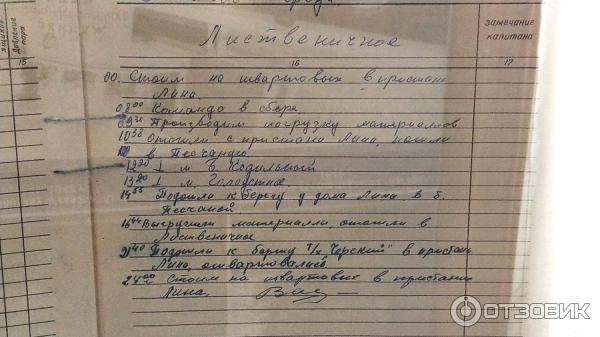 ящиков
Давление пара
замечание капитана
15
16
17
Лиственичное
00. Стоим на швартовых в пристани
Лина.
08 00 Команда в сборе
09 20 Производим погрузку материалов
10 58 Отошли с пристани Лина, пошли
в Песчаную.
12 20 ⊥ м Б. Кадильный
13 20 ⊥ м. Голоустное.
14 55 Подошли к берегу у дома Лина в б.
Песчаной
16 44 Выгрузили материалы, отошли в
Лиственичное
21 40 Подошли к борту т/х "Черский" в пристани
Лина, ошвартовались.
24 00 Стоим на швартовых в пристани
Лина.
ОТЗОВИК